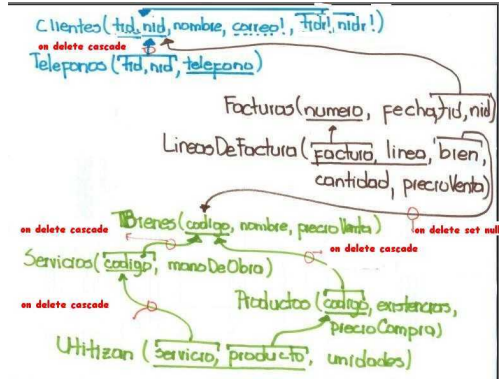 Clientes(tid, nid, nombre, correo!, tidr!, nidr!)
on delete cascade
Telefonos(tid, nid, telefono)
Facturas(numero, fecha, tid, nid)
LineasDeFactura(factura, linea, bien,
cantidad, precioVenta)
Bienes(codigo, nombre, precioVenta)
on delete set null
on delete cascade
on delete cascade
Servicios(codigo, manoDeObra)
on delete cascade
Productos(codigo, existencias,
precioCompra)
Utilizan (servicio, producto, unidades)